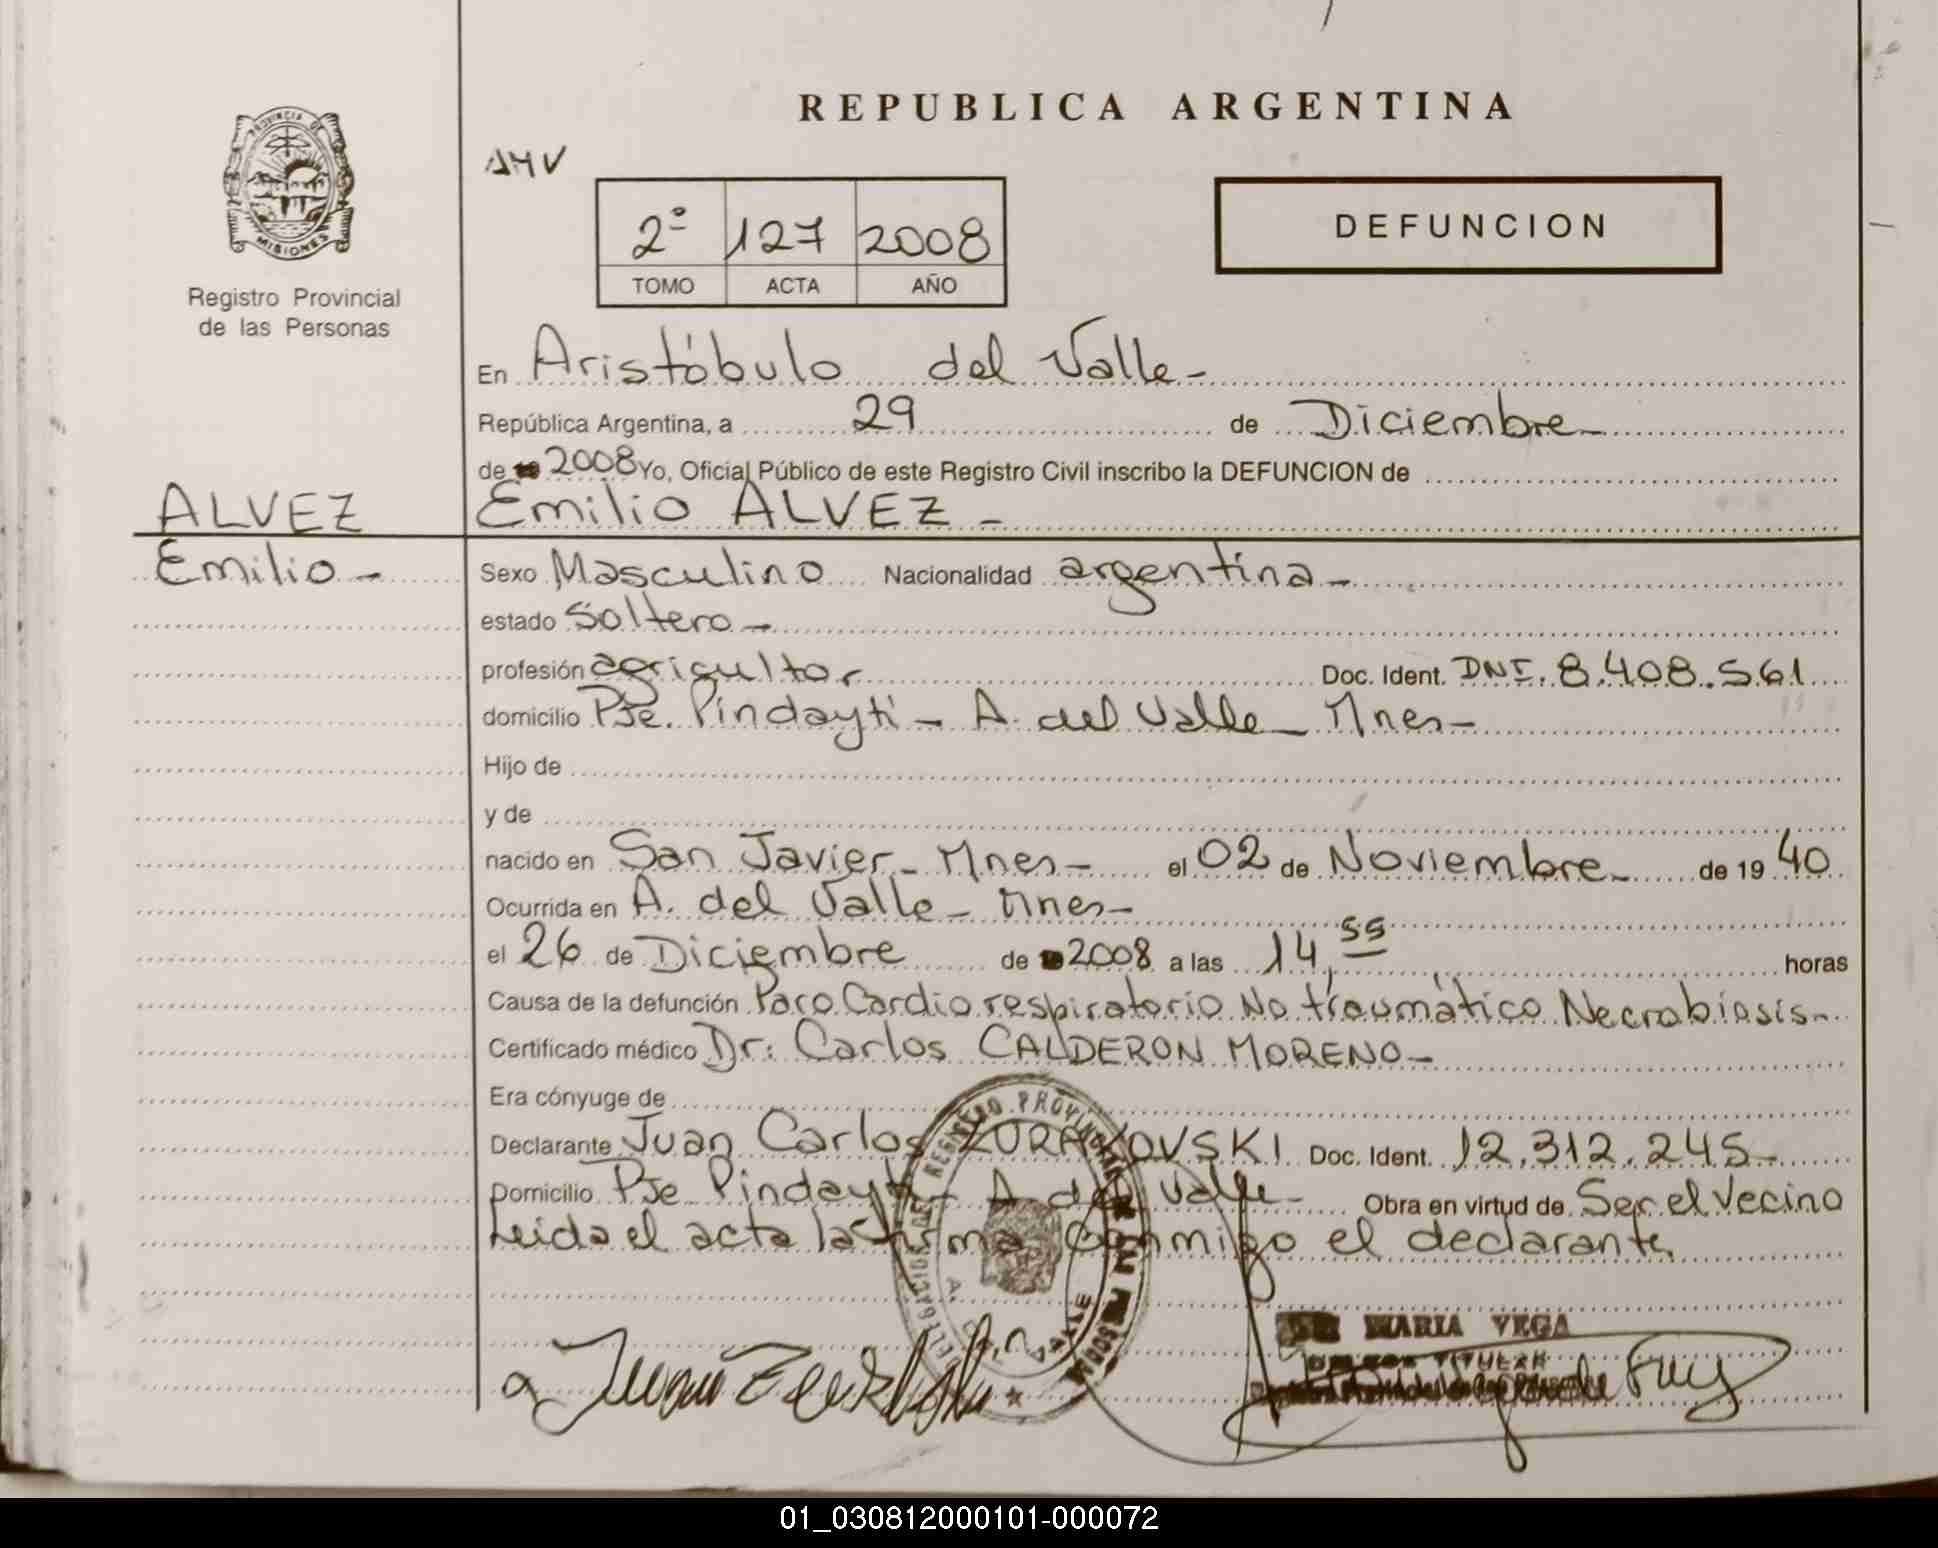 REPUBLICA ARGENTINA
PROVINCIA DE
MISIONES
AMV
2º 127 2008
TOMO ACTA AÑO
DEFUNCION
Registro Provincial
de las Personas
En Aristóbulo del Valle-
República Argentina, a 29 de Diciembre-
de 2008 Yo, Oficial Público de este Registro Civil inscribo la DEFUNCION de
ALVEZ
Emilio ALVEZ-
Emilio-
Sexo Masculino Nacionalidad argentina-
estado Soltero-
profesión agricultor Doc. Ident. DNI. 8.408.561
domicilio Pje. Pindaytí- A. del Valle- Mnes-
Hijo de
y de
nacido en San Javier- Mnes- el 02 de Noviembre- de 19 40
Ocurrida en A. del Valle- Mnes-
el 26 de Diciembre de 2008 a las 14,55 horas
Causa de la defunción Paro Cardiorespiratorio No traumático Necrobiosis-
Certificado médico Dr: Carlos CALDERON MORENO-
Era cónyuge de
Declarante Juan Carlos ZURAKOVSKI Doc. Ident. 12.312.245-
Domicilio Pje Pindaytí- A. del Valle- Obra en virtud de Ser el Vecino
Leida el acta la firma conmigo el declarante
MARIA VEGA
TITULAR
01_030812000101-000072